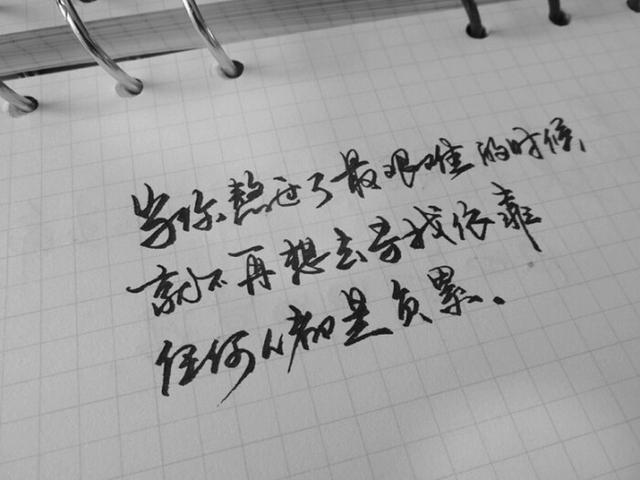 当你熬过了最艰难的时候
就不再想去寻找依靠
任何人都是负累、